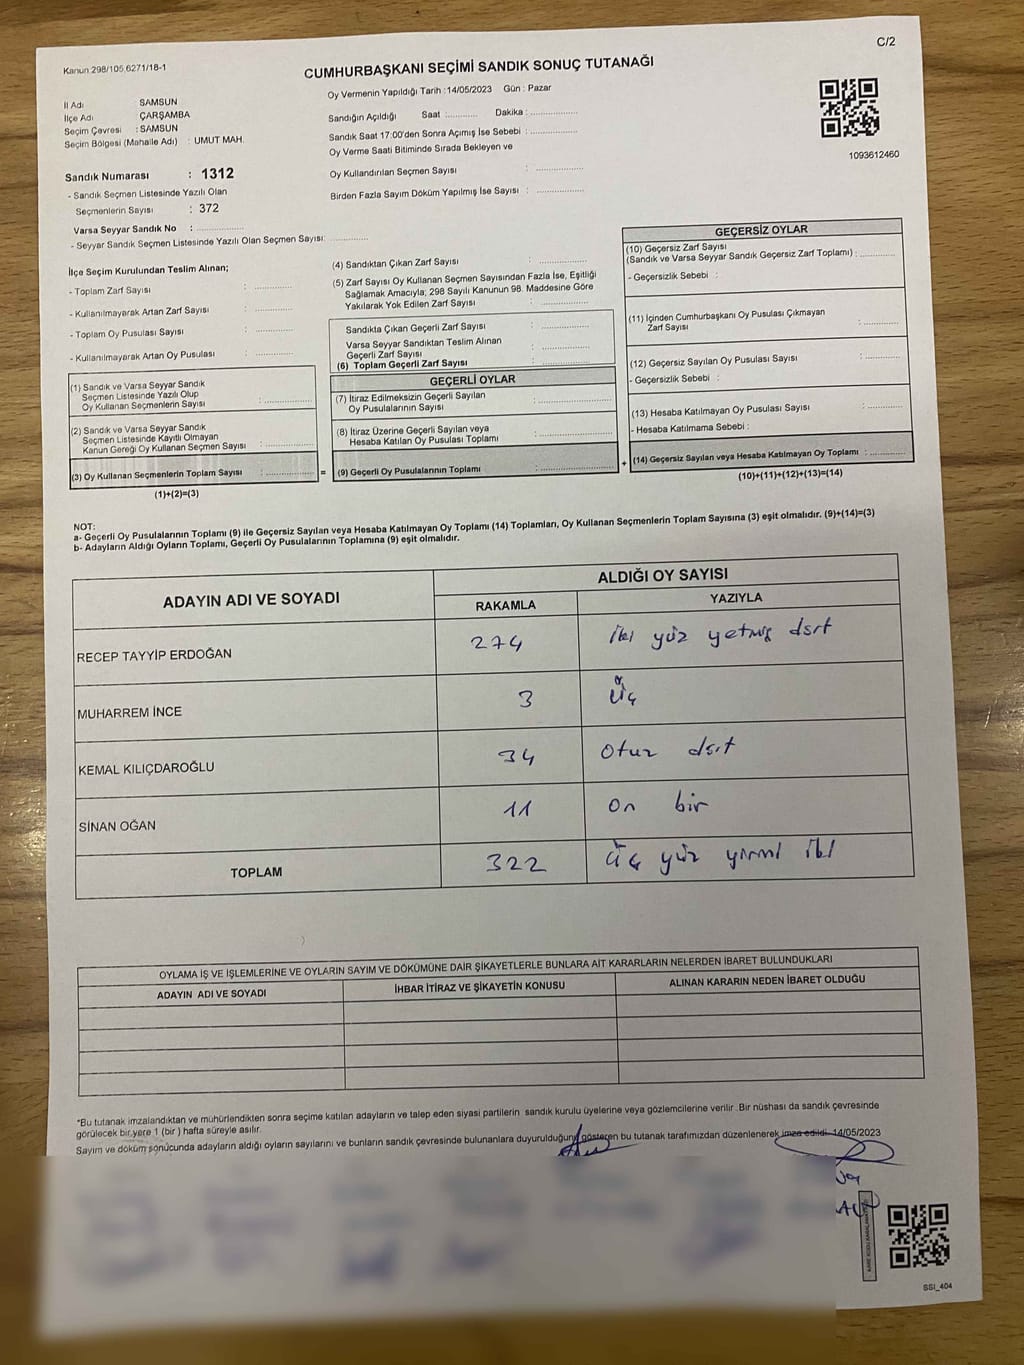 Kanun 298/105,6271/18-1
C/2
CUMHURBAŞKANI SEÇİMİ SANDIK SONUÇ TUTANAĞI
İl Adı SAMSUN
İlçe Adı ÇARŞAMBA
Seçim Çevresi : SAMSUN
Seçim Bölgesi (Mahalle Adı) : UMUT MAH.
Sandık Numarası : 1312
- Sandık Seçmen Listesinde Yazılı Olan
Seçmenlerin Sayısı : 372
Varsa Seyyar Sandık No :
- Seyyar Sandık Seçmen Listesinde Yazılı Olan Seçmen Sayısı:
Oy Vermenin Yapıldığı Tarih :14/05/2023 Gün : Pazar
Sandığın Açıldığı Saat Dakika :
Sandık Saat 17:00'den Sonra Açımış İse Sebebi :
Oy Verme Saati Bitiminde Sırada Bekleyen ve
Oy Kullandırılan Seçmen Sayısı :
Birden Fazla Sayım Döküm Yapılmış İse Sayısı :
1093612460
İlçe Seçim Kurulundan Teslim Alınan;
- Toplam Zarf Sayısı :
- Kullanılmayarak Artan Zarf Sayısı :
- Toplam Oy Pusulası Sayısı :
- Kullanılmayarak Artan Oy Pusulası :
(1) Sandık ve Varsa Seyyar Sandık
Seçmen Listesinde Yazılı Olup
Oy Kullanan Seçmenlerin Sayısı :
(2) Sandık ve Varsa Seyyar Sandık
Seçmen Listesinde Kayıtlı Olmayan
Kanun Gereği Oy Kullanan Seçmen Sayısı :
(3) Oy Kullanan Seçmenlerin Toplam Sayısı :
(1)+(2)=(3)
=
(4) Sandıktan Çıkan Zarf Sayısı :
(5) Zarf Sayısı Oy Kullanan Seçmen Sayısından Fazla İse, Eşitliği
Sağlamak Amacıyla; 298 Sayılı Kanunun 98. Maddesine Göre
Yakılarak Yok Edilen Zarf Sayısı :
Sandıkta Çıkan Geçerli Zarf Sayısı :
Varsa Seyyar Sandıktan Teslim Alınan
Geçerli Zarf Sayısı :
(6) Toplam Geçerli Zarf Sayısı :
GEÇERLİ OYLAR
(7) İtiraz Edilmeksizin Geçerli Sayılan
Oy Pusulalarının Sayısı :
(8) İtiraz Üzerine Geçerli Sayılan veya
Hesaba Katılan Oy Pusulası Toplamı :
(9) Geçerli Oy Pusulalarının Toplamı :
+
GEÇERSİZ OYLAR
(10) Geçersiz Zarf Sayısı
(Sandık ve Varsa Seyyar Sandık Geçersiz Zarf Toplamı) :
- Geçersizlik Sebebi :
(11) İçinden Cumhurbaşkanı Oy Pusulası Çıkmayan
Zarf Sayısı :
(12) Geçersiz Sayılan Oy Pusulası Sayısı :
- Geçersizlik Sebebi :
(13) Hesaba Katılmayan Oy Pusulası Sayısı :
- Hesaba Katılmama Sebebi :
(14) Geçersiz Sayılan veya Hesaba Katılmayan Oy Toplamı :
(10)+(11)+(12)+(13)=(14)
NOT:
a- Geçerli Oy Pusulalarının Toplamı (9) ile Geçersiz Sayılan veya Hesaba Katılmayan Oy Toplamı (14) Toplamları, Oy Kullanan Seçmenlerin Toplam Sayısına (3) eşit olmalıdır. (9)+(14)=(3)
b- Adayların Aldığı Oyların Toplamı, Geçerli Oy Pusulalarının Toplamına (9) eşit olmalıdır.
ADAYIN ADI VE SOYADI ALDIĞI OY SAYISI
RAKAMLA YAZIYLA
RECEP TAYYİP ERDOĞAN 274 iki yüz yetmiş dört
MUHARREM İNCE 3 üç
KEMAL KILIÇDAROĞLU 34 otuz dört
SİNAN OĞAN 11 on bir
TOPLAM 322 üç yüz yirmi iki
OYLAMA İŞ VE İŞLEMLERİNE VE OYLARIN SAYIM VE DÖKÜMÜNE DAİR ŞİKAYETLERLE BUNLARA AİT KARARLARIN NELERDEN İBARET BULUNDUKLARI
ADAYIN ADI VE SOYADI İHBAR İTİRAZ VE ŞİKAYETİN KONUSU ALINAN KARARIN NEDEN İBARET OLDUĞU
*Bu tutanak imzalandıktan ve mühürlendikten sonra seçime katılan adayların ve talep eden siyasi partilerin sandık kurulu üyelerine veya gözlemcilerine verilir. Bir nüshası da sandık çevresinde
görülecek bir yere 1 (bir ) hafta süreyle asılır.
Sayım ve döküm sonucunda adayların aldığı oyların sayılarını ve bunların sandık çevresinde bulunanlara duyurulduğunu gösteren bu tutanak tarafımızdan düzenlenerek imza edildi. 14/05/2023
SSI_404